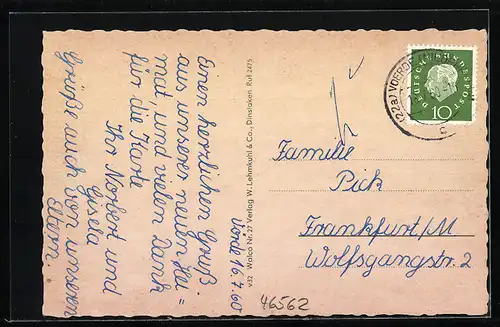 Vörde 16.7.60
Einen herzlichen Gruß
aus unserer neuen Hei=
mat und vielen Dank
für die Karte
Ihr Norbert und
Gisela
Grüße auch von unseren
Eltern.
v32 Walco Nr. 27 Verlag W. Lehmkuhl & Co., Dinslaken Ruf 2475
Familie
Pick
Frankfurt/M
Wolfsgangstr. 2
DEUTSCHE BUNDESPOST
10
(22a) VOERDE
46562